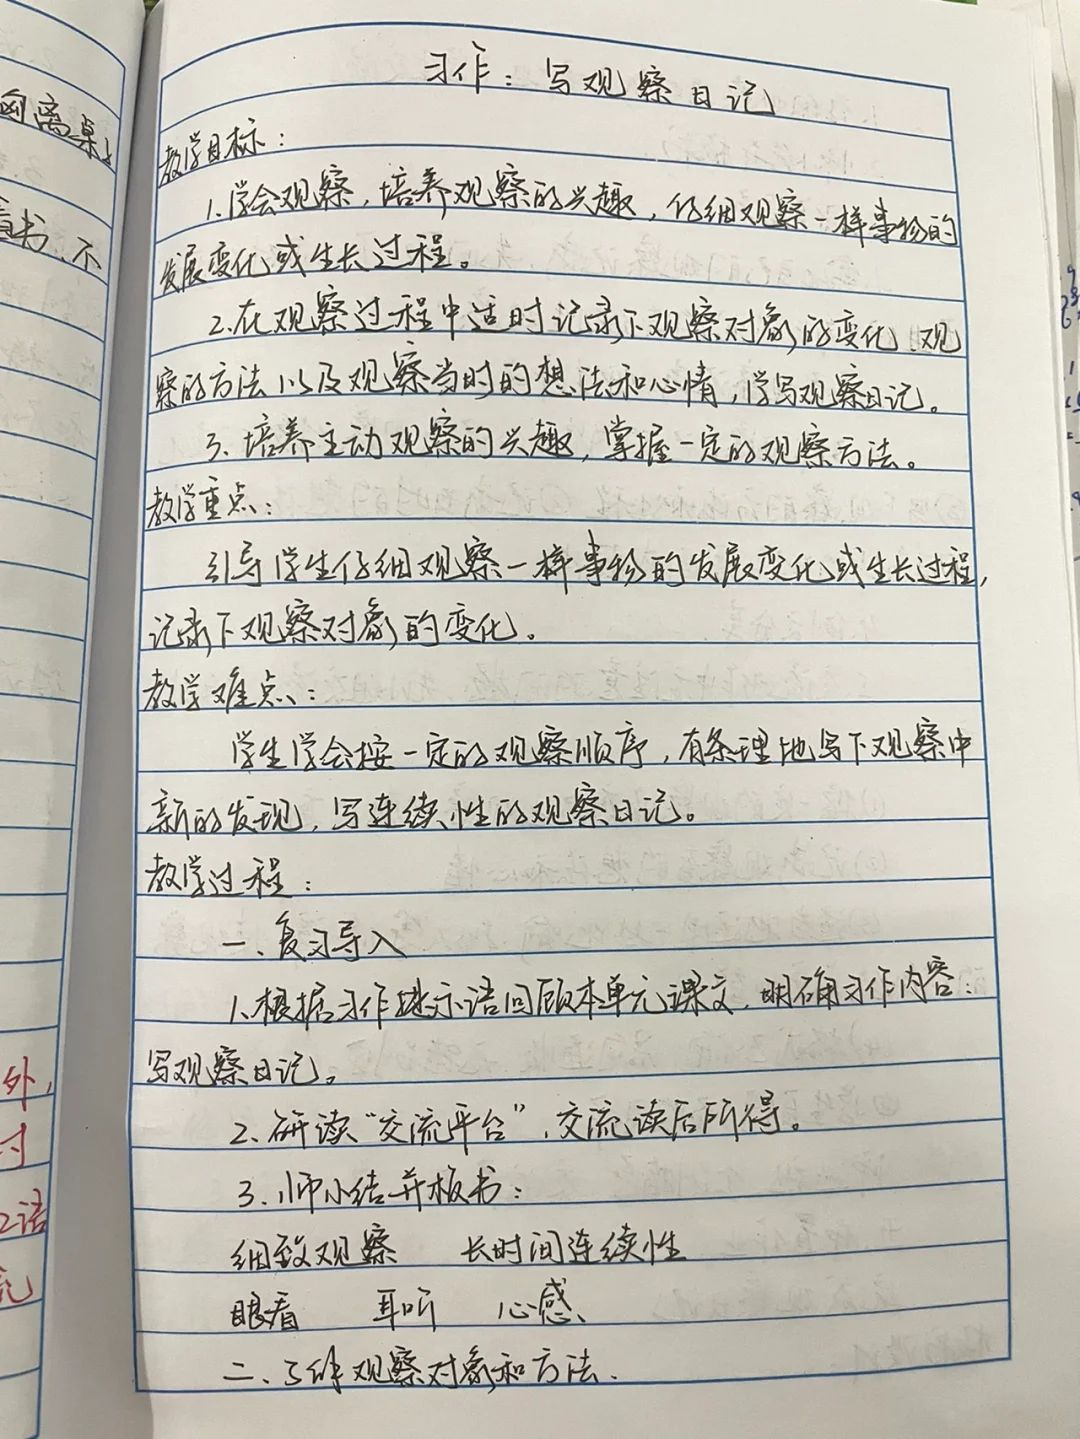 离桌
书、不
外,
讨
语
习作：写观察日记
教学目标：
1.学会观察,培养观察的兴趣,仔细观察一样事物的
发展变化或生长过程。
2.在观察过程中适时记录下观察对象的变化、观
察的方法以及观察当时的想法和心情,学写观察日记。
3.培养主动观察的兴趣,掌握一定的观察方法。
教学重点：
引导学生仔细观察一样事物的发展变化或生长过程,
记录下观察对象的变化。
教学难点：
学生学会按一定的观察顺序,有条理地写下观察中
新的发现,写连续性的观察日记。
教学过程：
一、复习导入
1.根据习作提示语回顾本单元课文,明确习作内容：
写观察日记。
2.研读“交流平台”,交流读后所得。
3.师小结并板书：
细致观察 长时间连续性
眼看 耳听 心感
二、了解观察对象和方法.